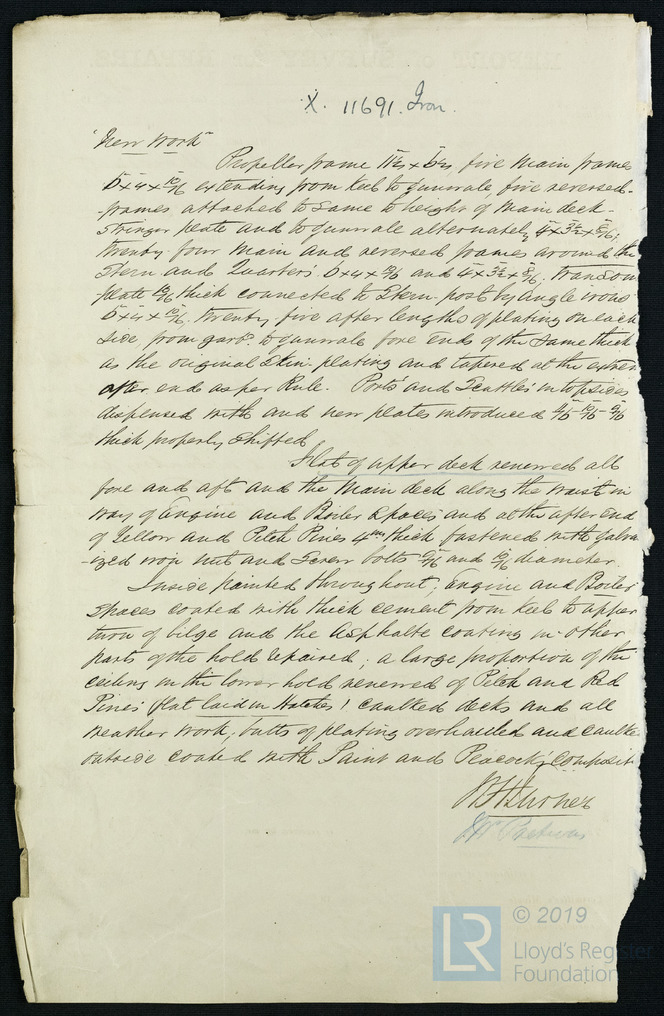 X. 11691. Iron.
"New Work"
Propeller frame 11½ x 6½, five Main frames
5 x 4 x 10/16 extending from keel to gunwale five reversed-
-frames attached to same to height of Main deck-
Stringer plate and to gunwale alternately 4 x 3½ x 8/16;
twenty four Main and reversed frames around the
Stern and Quarters. 5 x 4 x 9/16 and 4 x 3½ x 8/16; transom
plate 12/16 thick connected to Stern-post by angle irons
5 x 4 x 10/16. twenty-five after lengths of plating on each
side from garbd. to gunwale fore ends of the same thick
as the original Skin-plating and tapered at the extrem
after ends as per Rule. Ports and Scuttles in topsides
dispensed with and new plates introduced
thick properly shifted
Flat of upper deck renewed all
fore and aft and the Main deck along the waist in
way of Engine and Boiler Spaces and at the after End
of Yellow and Pitch Pines 4 ins thick fastened with Galva
-ized iron nut and Screw bolts 9/16 and 10/16 diameter.
Inside painted throughout; Engine and Boiler
Spaces coated with thick cement from keel to upper
turn of bilge and the Asphalte coating in other
parts of the hold repaired; a large proportion of the
ceiling in the lower hold renewed of Pitch and Red
Pines (flat laid in Hatches) caulked decks and all
weather work; butts of plating overhauled and caulke
outside coated with Paint and Peacock's Composit
Turner
LR © 2019
Lloyd's Register
Foundation